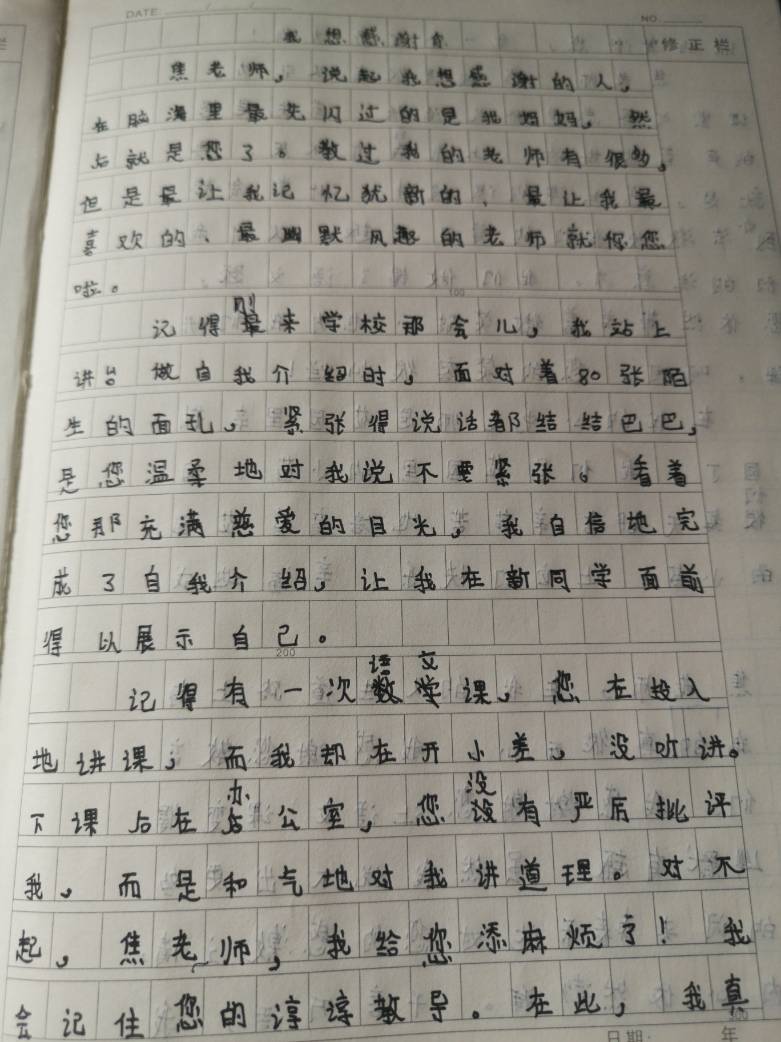 DATE / /
NO.
我想感谢你
修正栏
焦老师,说起我想感谢的人,
在脑海里最先闪过的是我妈妈,然
后就是您了。教过我的老师有很多,
但是最让我记忆犹新的、最让我最
喜欢的、最幽默风趣的老师就你您
啦。
100
记得刚最来学校那会儿,我站上
讲台做自我介绍时,面对着80张陌
生的面孔,紧张得说话都结结巴巴,
是您温柔地对我说不要紧张。看着
您那充满慈爱的目光,我自信地完
成了自我介绍,让我在新同学面前
得以展示自己。
200
语文
记得有一次数学课,您在投入
地讲课,而我却在开小差,没听讲。
下课后在办公室,您没有严厉批评
我,而是和气地对我讲道理。对不
起,焦老师,我给您添麻烦了!我
会记住您的谆谆教导。在此,我真
日期: 年